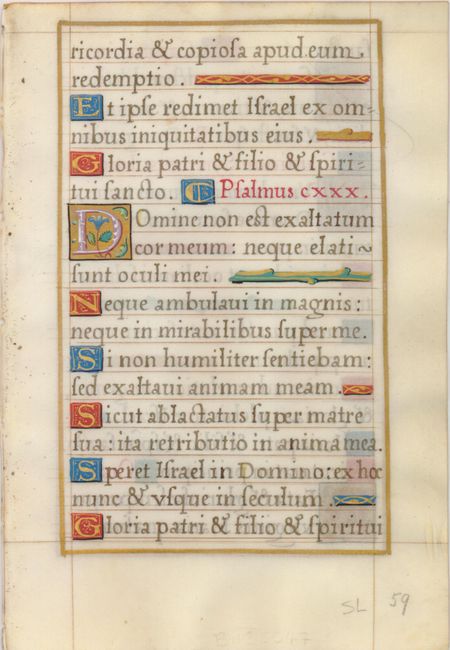 ricordia & copiosa apud eum
redemptio.
Et ipse redimet Israel ex om=
nibus iniquitatibus eius.
Gloria patri & filio & spiri-
tui sancto. Psalmus cxxx.
Domine non est exaltatum
cor meum: neque elati~
sunt oculi mei.
Neque ambulaui in magnis:
neque in mirabilibus super me.
Si non humiliter sentiebam:
sed exaltaui animam meam.
Sicut ablactatus super matre
sua: ita retributio in anima mea.
Speret Israel in Domino: ex hoc
nunc & vsque in seculum.
Gloria patri & filio & spiritui
SL 59